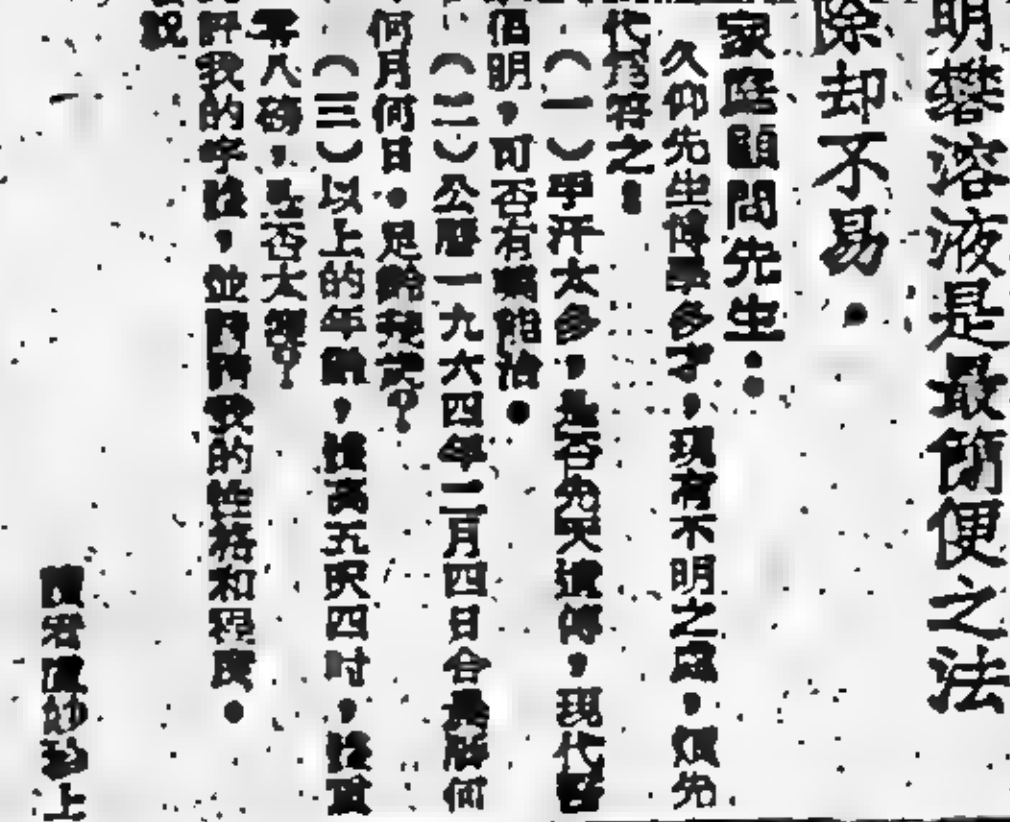 明礬溶液是最簡便之法
除却不易．
家庭顧問先生：
久仰先生博學多才，現有不明之處，煩先
代為答之！
（一）手汗太多，是否先天遺傳，現代醫
倡明，可否有藥能治．
（二）公曆一九六四年二月四日合農曆何
何月何日．足齡幾歲？
（三）以上的年齡，身高五呎四吋，體重
八磅，是否太輕？
評我的字體，並請問我的性格和程度．
說
陳君 妙 上